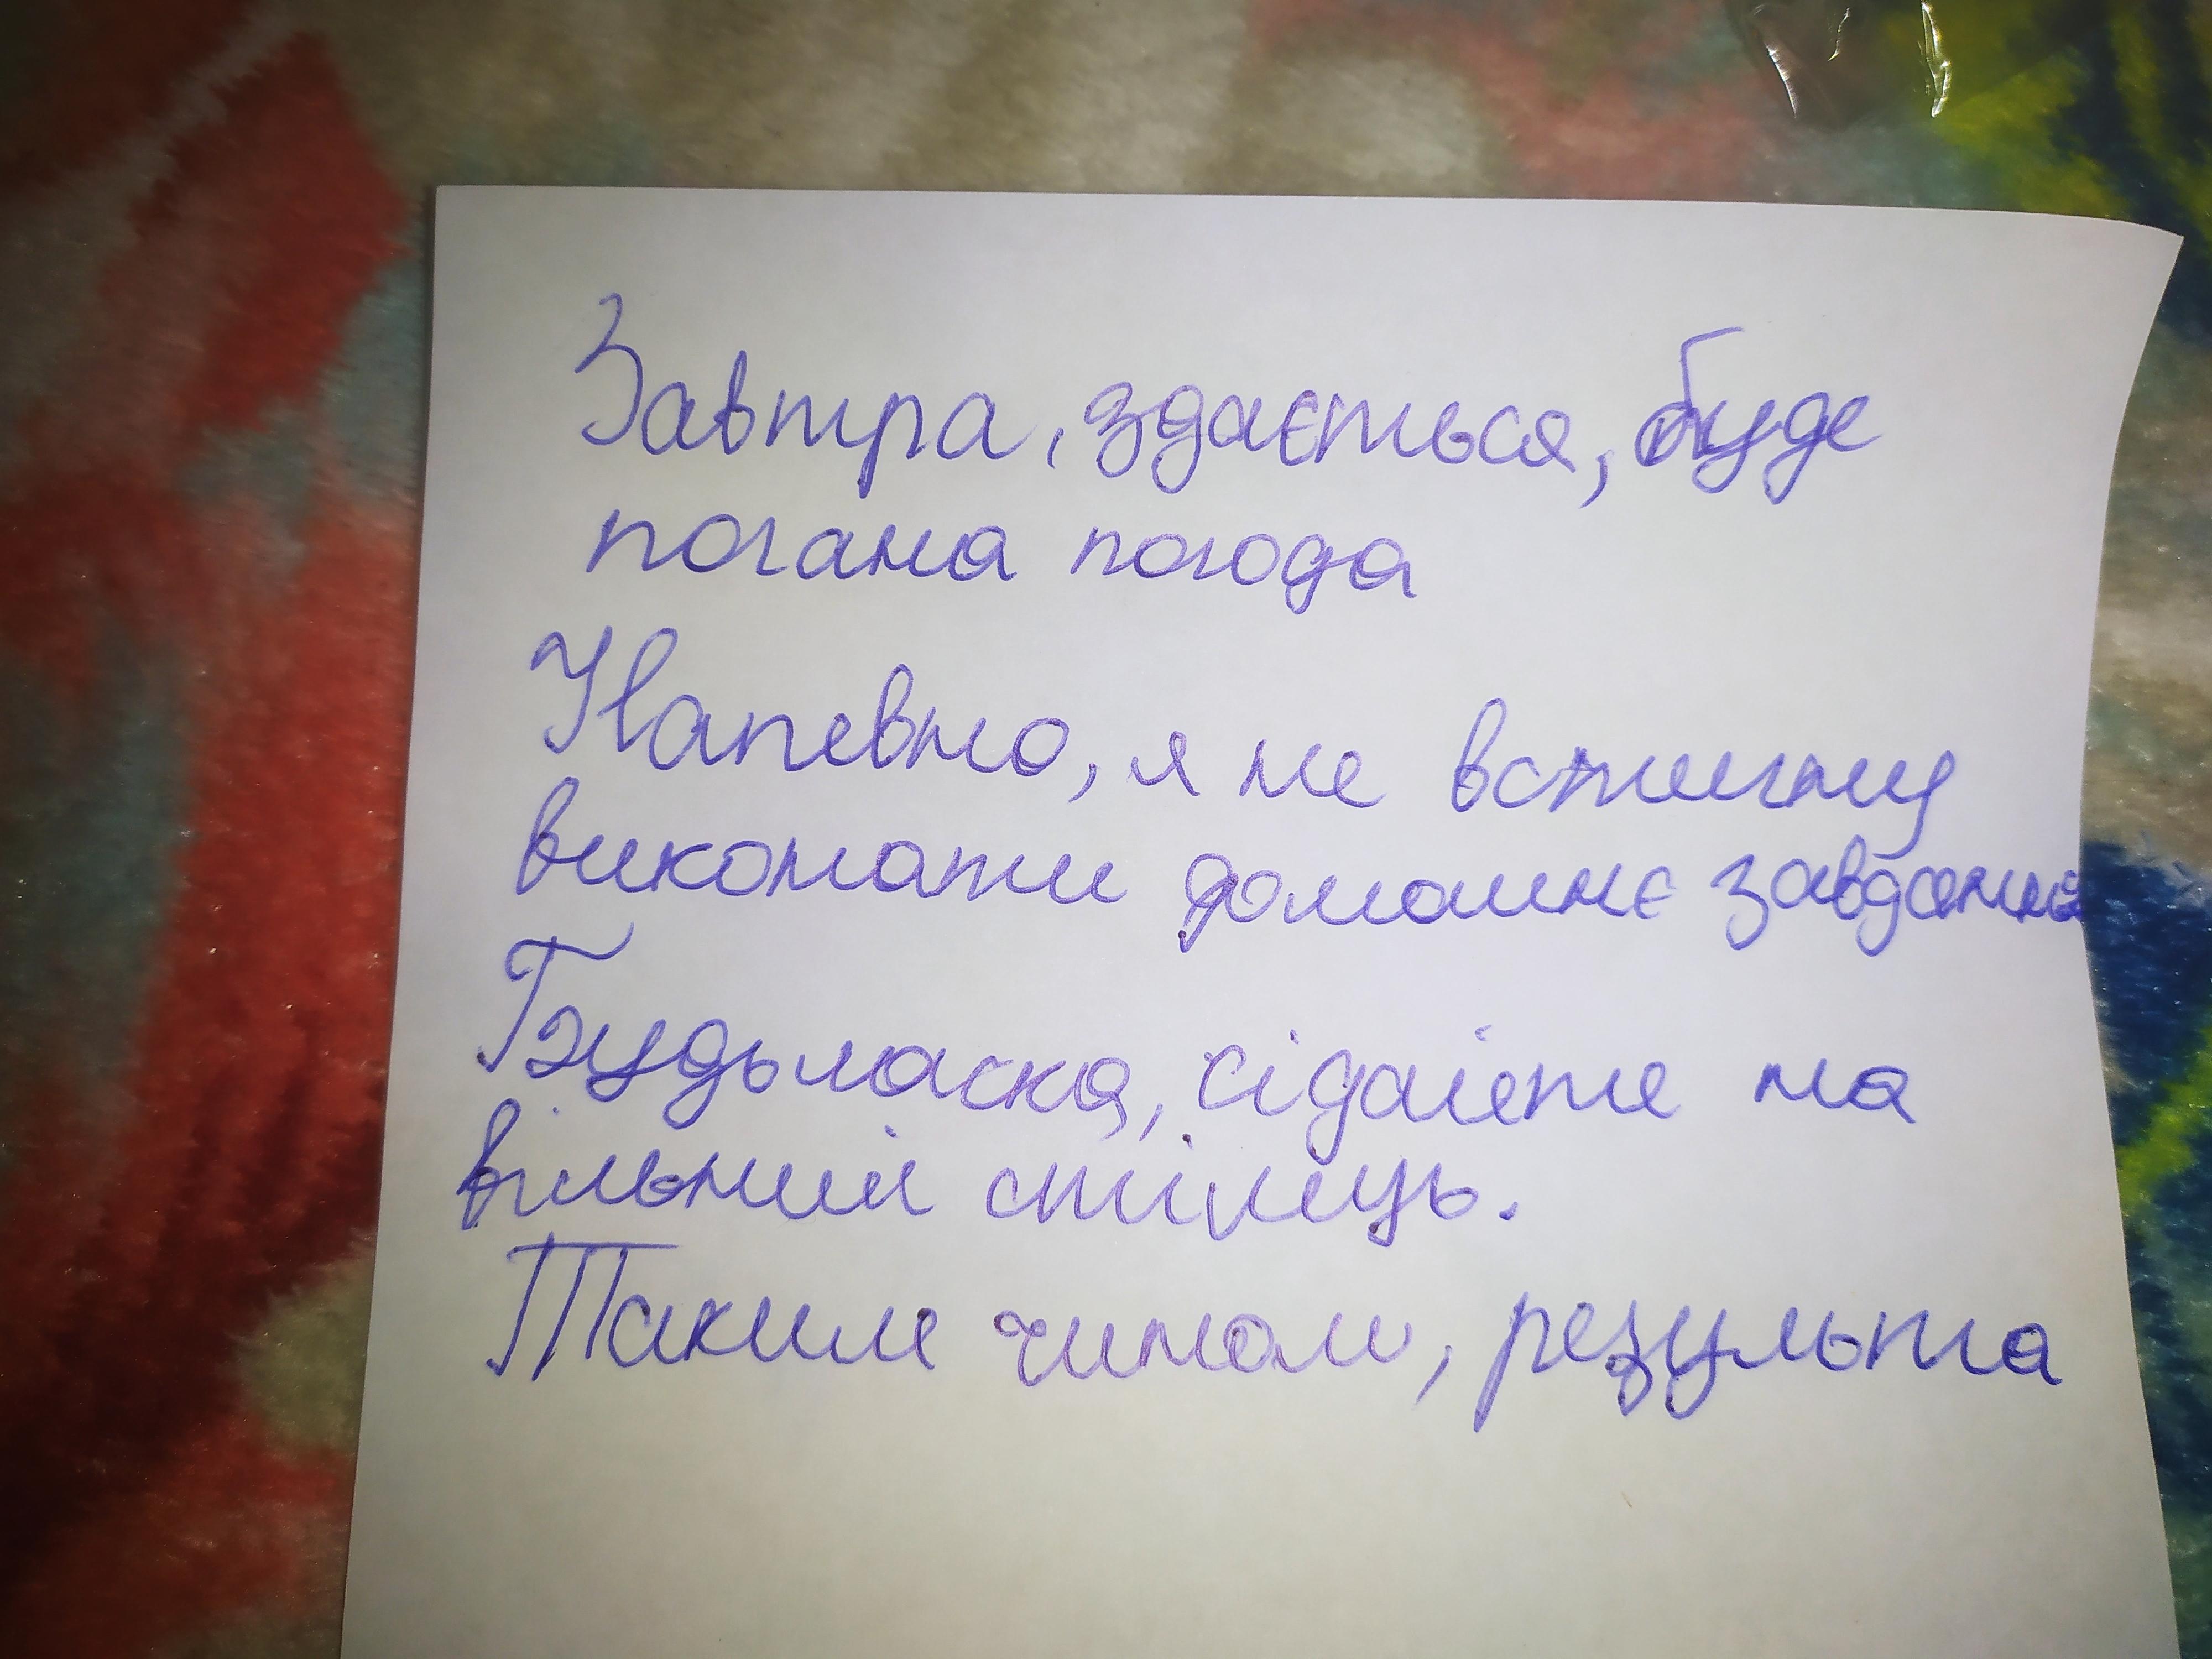 Завтра, здається, буде
погана погода
Напевно, я не встигну
виконати домашнє завдання
Будьласка, сідайете на
вільний стілець.
Таким чином, результа